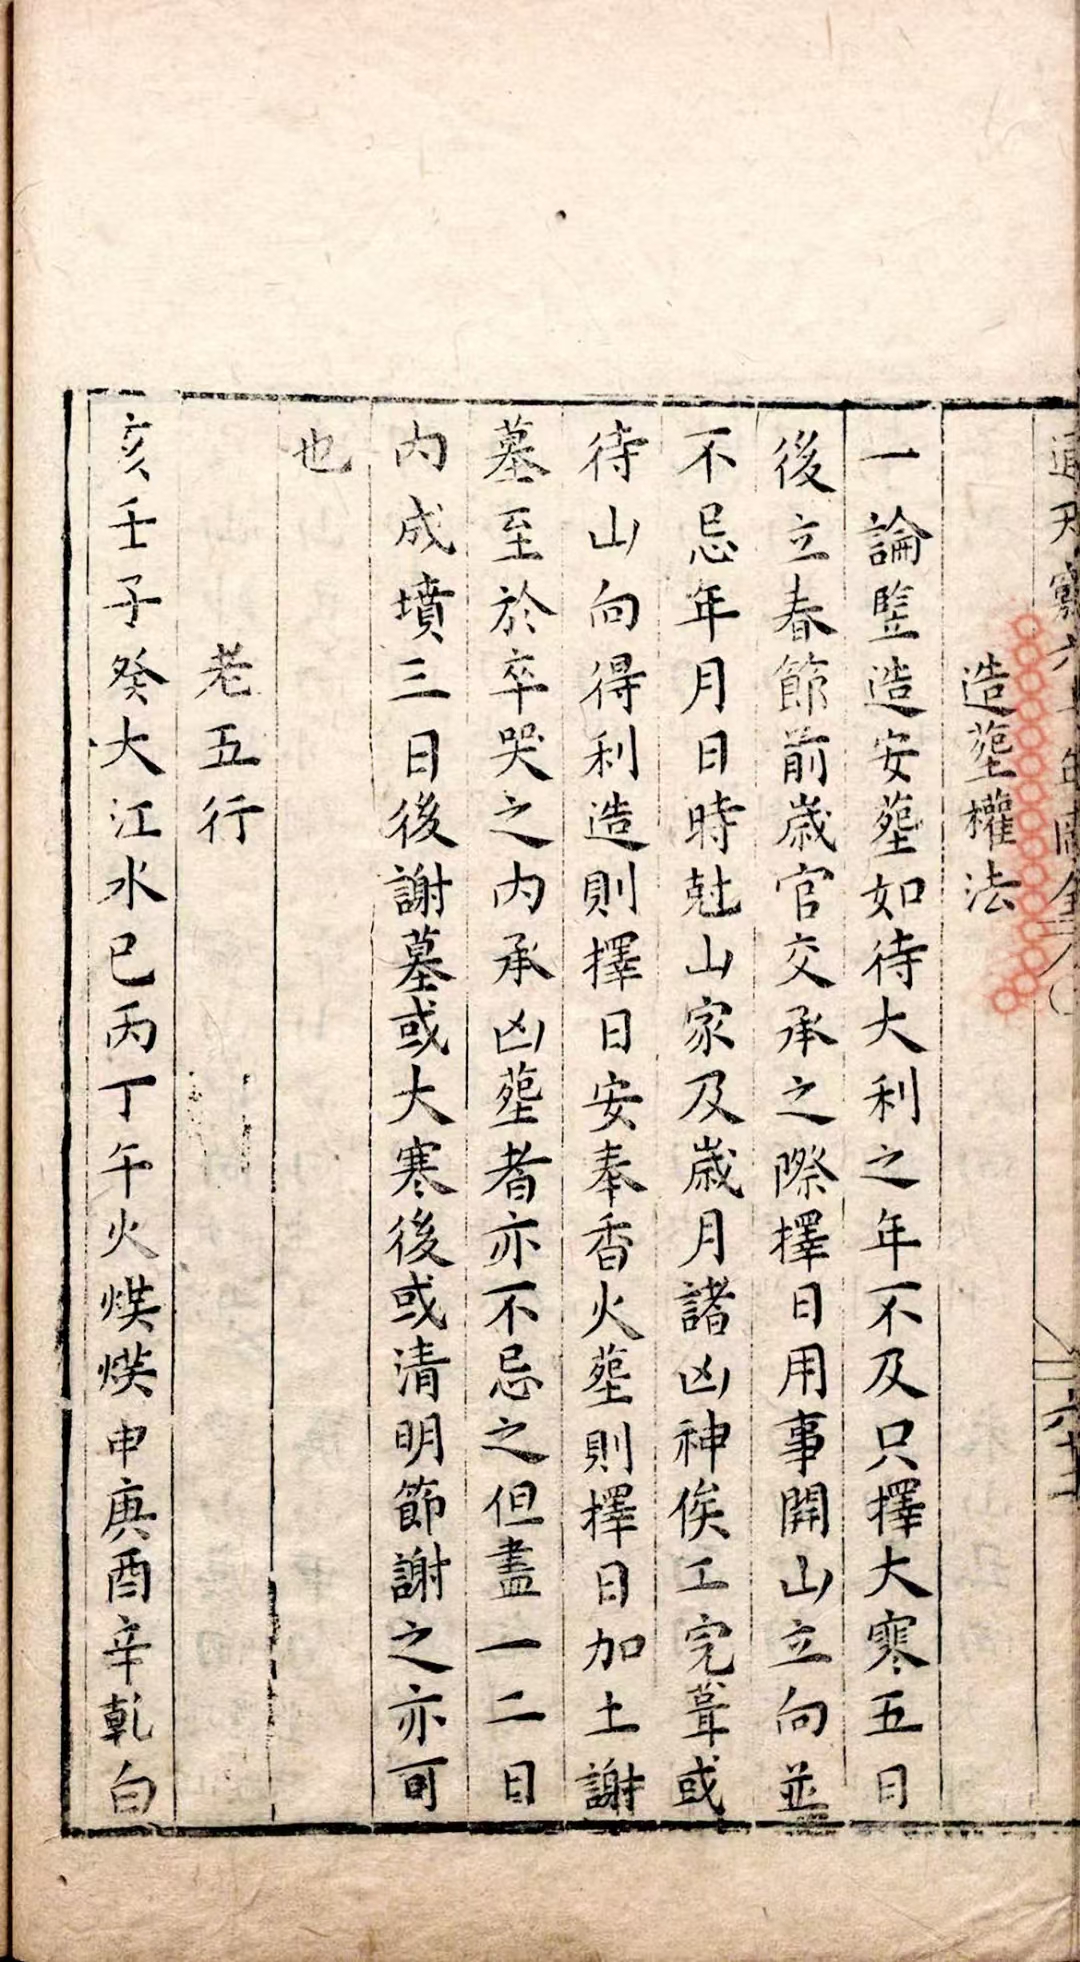 造塟權法
一論竪造安塟如待大利之年不及只擇大寒五日
後立春節前歲官交承之際擇日用事開山立向並
不忌年月日時尅山家及歲月諸凶神俟工完葺或
待山向得利造則擇日安奉香火塟則擇日加土謝
墓至於卒哭之內承凶塟者亦不忌之但盡一二日
內成墳三日後謝墓或大寒後或清明節謝之亦可
也
老五行
亥壬子癸大江水巳丙丁午火煐煐申庚酉辛乾白